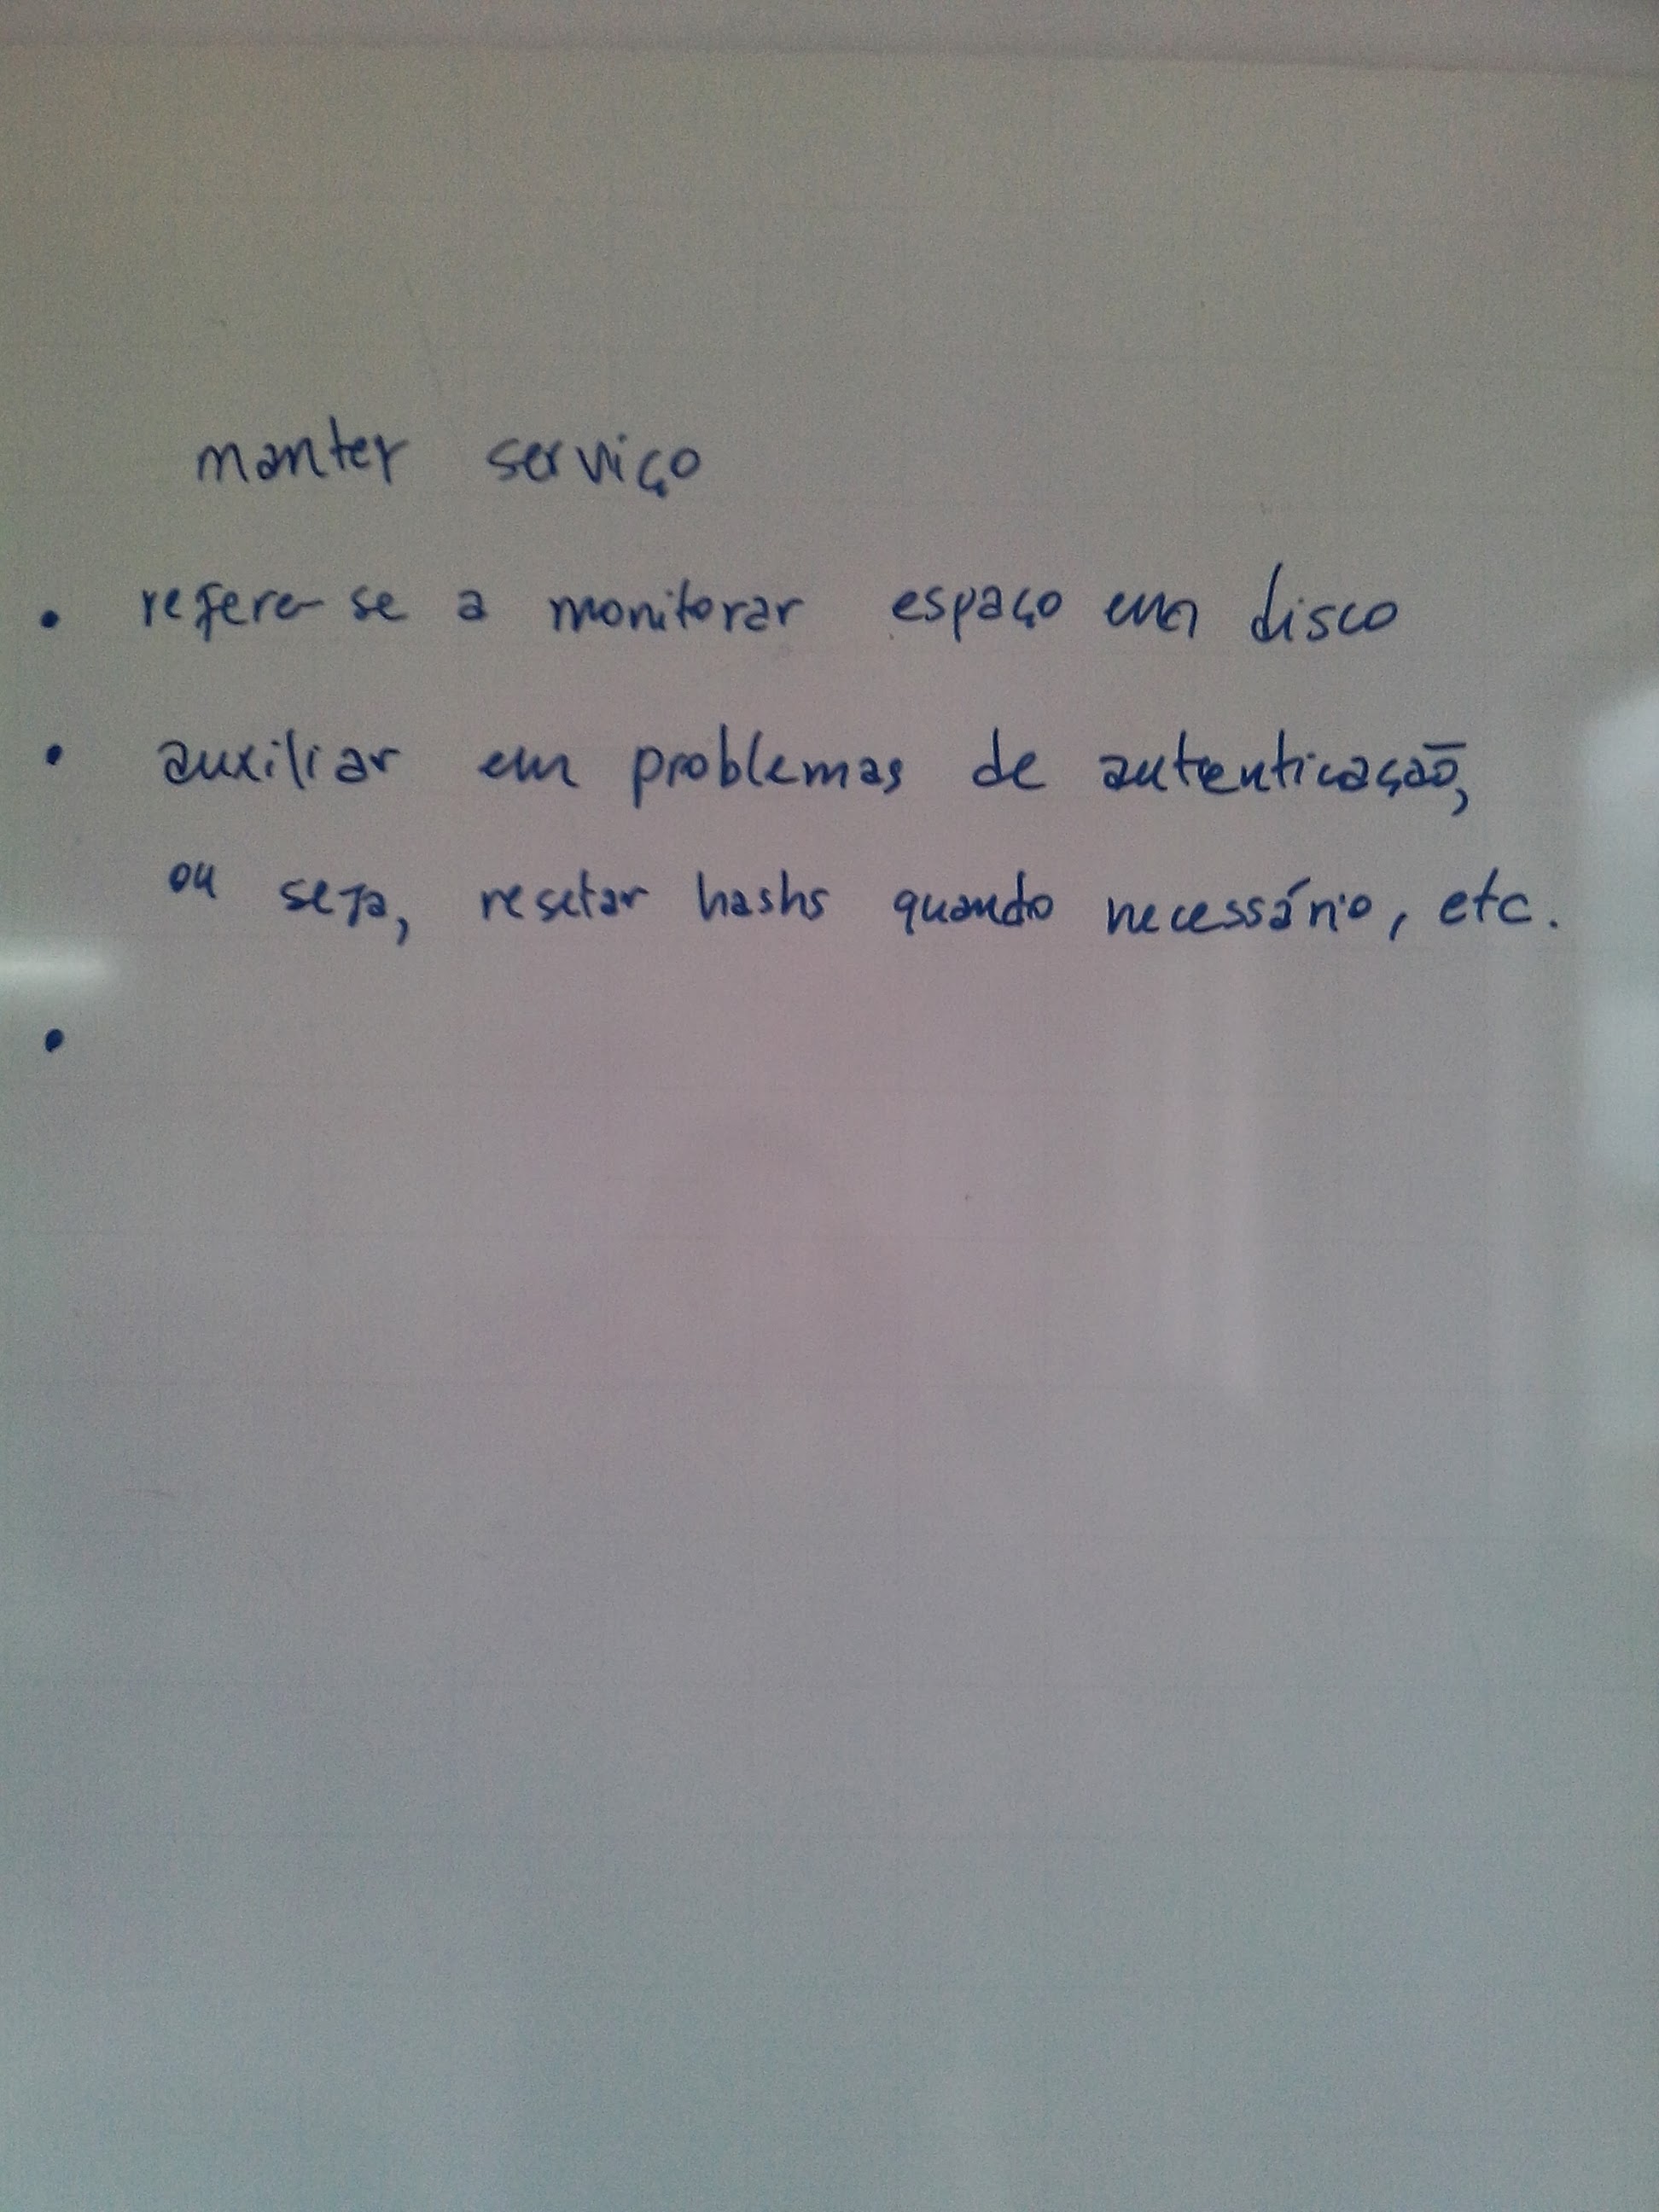 manter serviço
• refere-se a monitorar espaço em disco
• auxiliar em problemas de autenticação,
ou seja, resetar hashs quando necessário, etc.
•